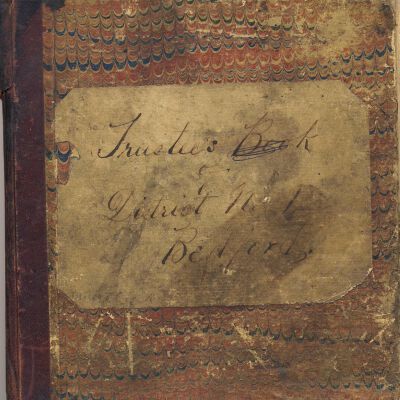 Trustees Book
of
District No. 1
Bedford.